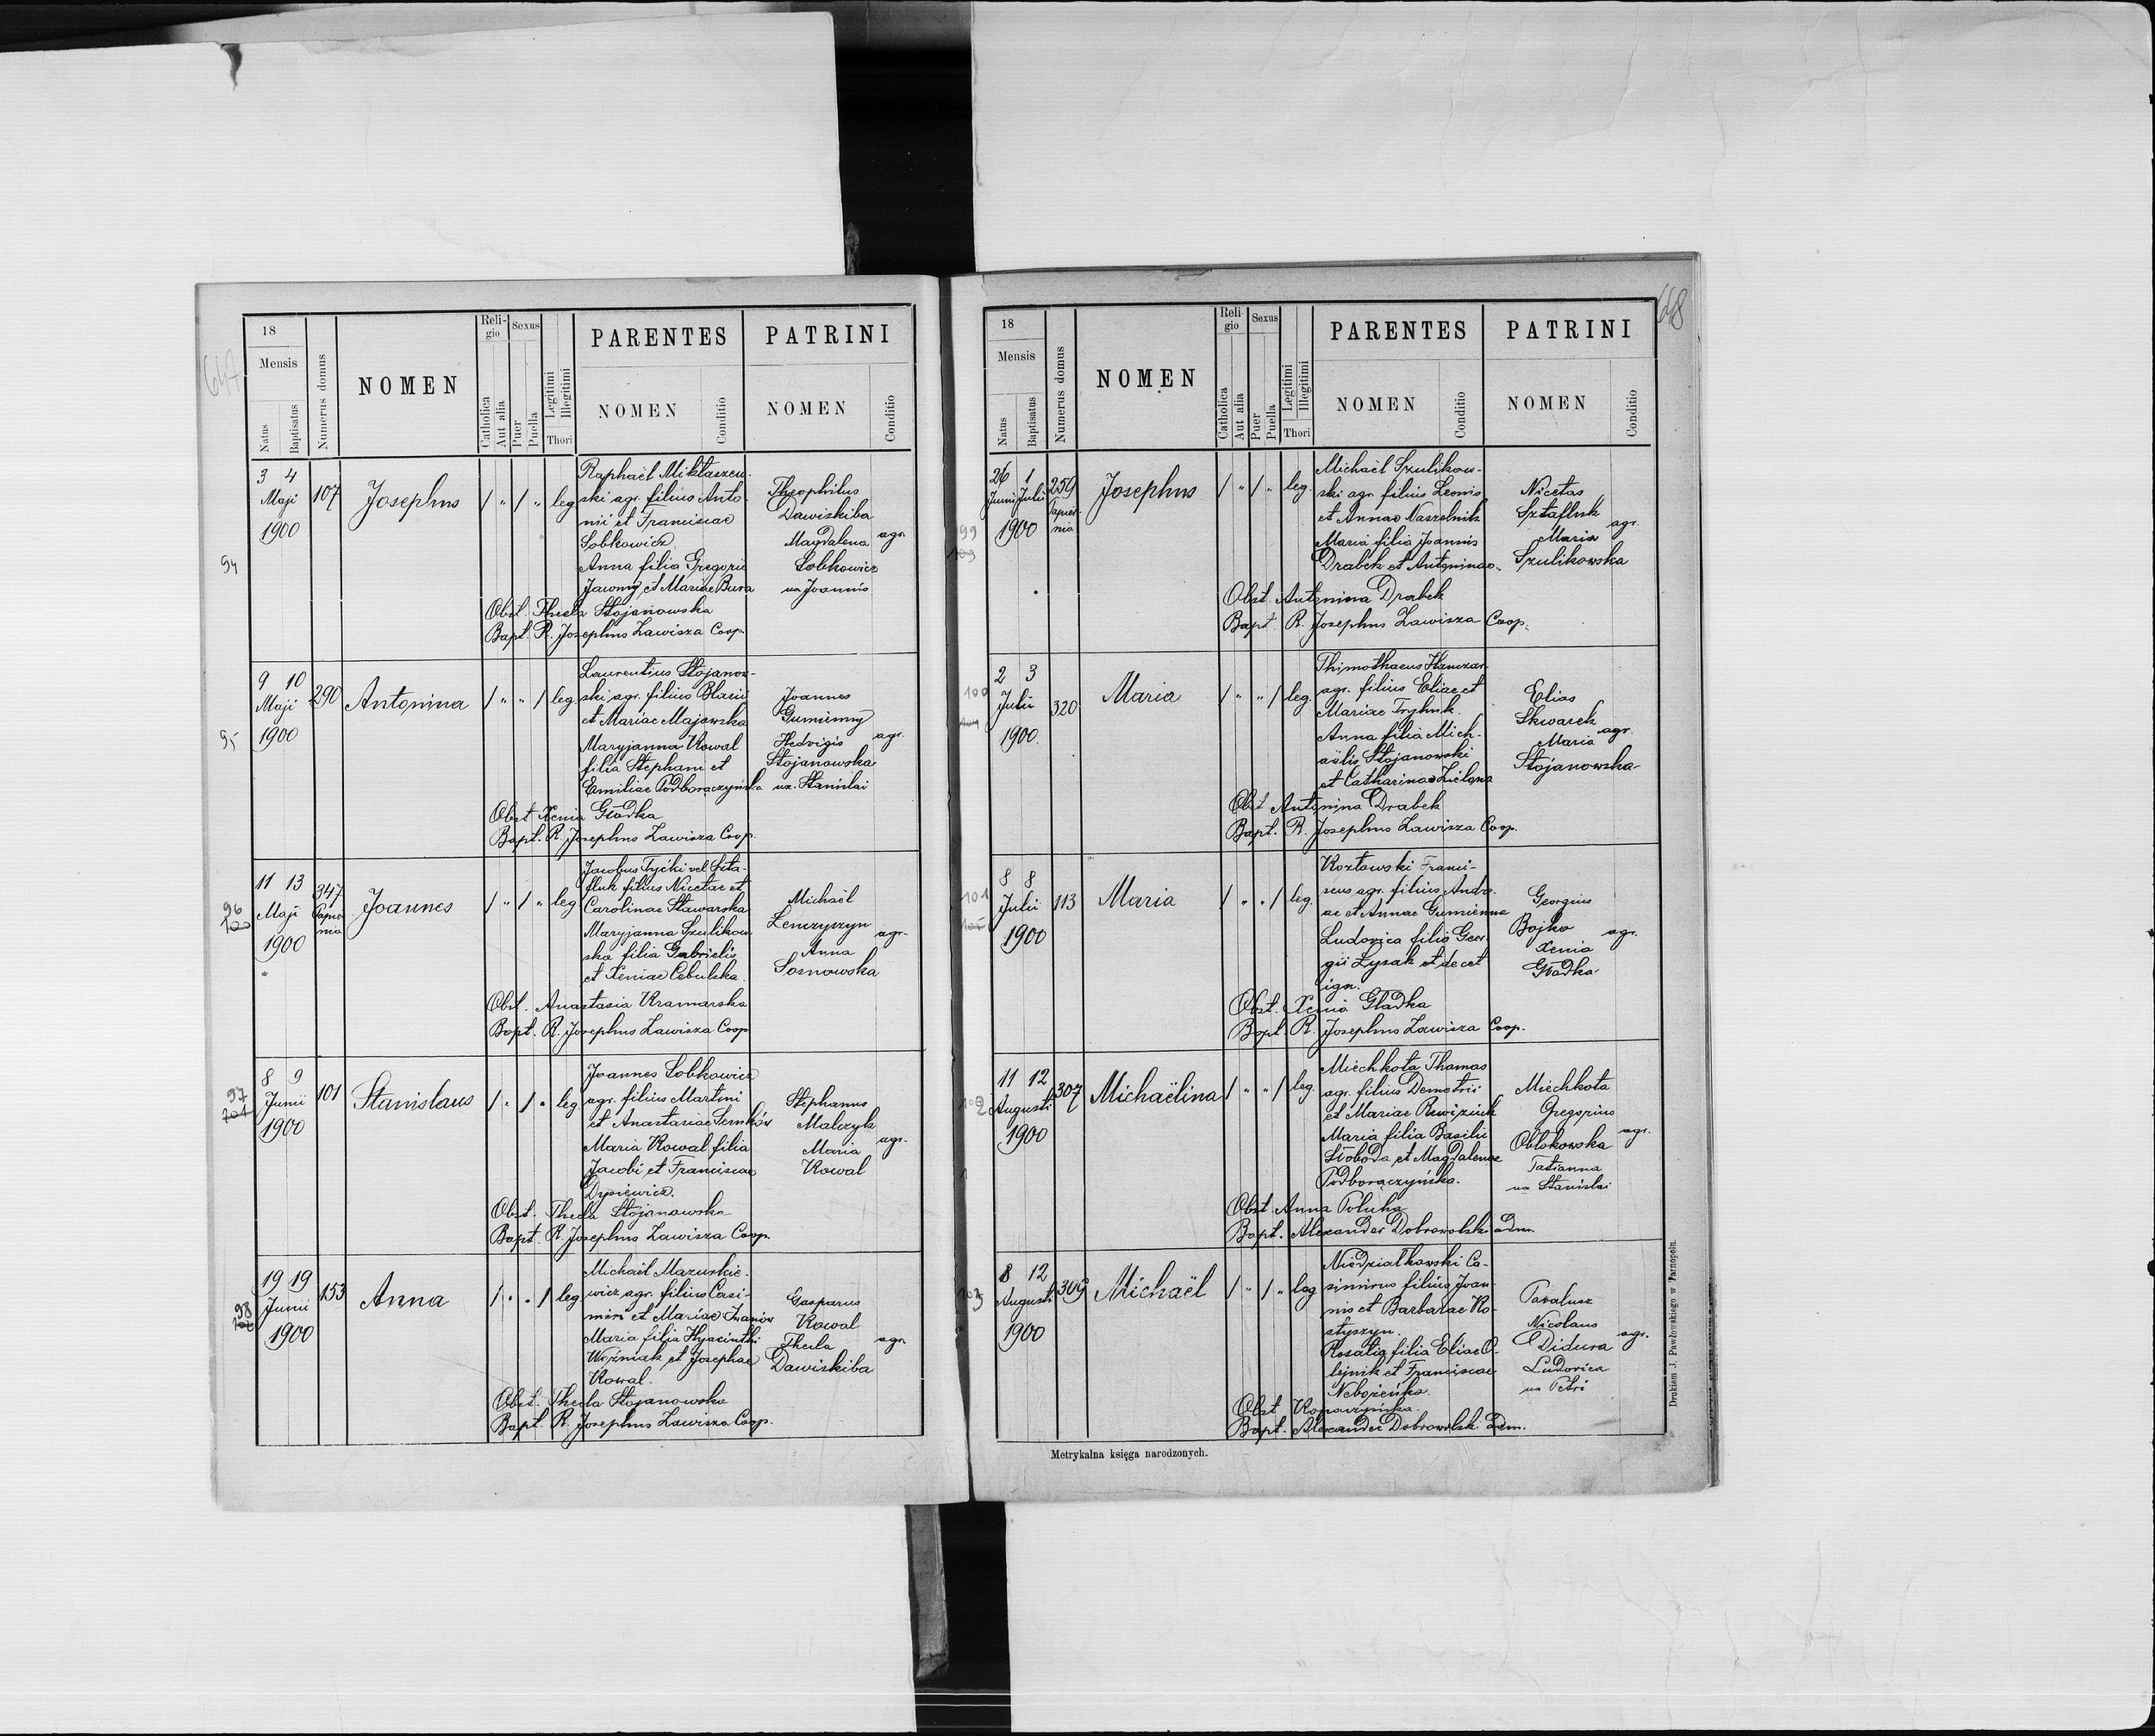 647
18
Mensis
Natus
Baptisatus
Numerus domus
NOMEN
Reli-
gio
Catholica
Aut alia
Sexus
Puer
Puella
Legitimi
Illegitimi
Thori
PARENTES
NOMEN
Conditio
PATRINI
NOMEN
Conditio
94
3 4
Maji
1900
107
Josephus
/ " / " leg
Raphaël Miktaszew-
ski agr. filius Anto-
nii et Franciscae
Sobkowicz
Anna filia Gregorii
Jawony et Mariae Bura
Theophilus
Dawiskiba
Magdalena agr.
Sobkowicz
ux Joannis
Obst. Thecla Stojanowska
Bapt. R. Josephus Zawisza Coop.
95
9 10
Maji
1900
290
Antonina
/ " " / leg
Laurentius Stojanow-
ski agr. filius Blasii
et Mariae Majowska
Maryjanna Kowal
filia Stephani et
Emiliae Podboraczyńska
Joannes
Gumienny
Hedvigis agr.
Stojanowska
ux. Stanislai
Obst Xenia Gładka
Bapt. R. Josephus Zawisza Coop.
96
100
11 13
Maji
1900
347
Joannes
/ " / " leg
Jacobus Tycki vel Szta-
fluk filius Nicetae et
Carolinae Stawarska
Maryjanna Szulikow-
ska filia Gabrielis
et Xeniae Cebulska.
Michaël
Lenczyszyn
agr.
Anna
Sosnowska
Obst. Anastasia Kramarska
Bapt. R. Josephus Zawisza Coop
97
101
8 9
Junii
1900
101
Stanislaus
/ " / " leg
Joannes Sobkowicz
agr. filius Martini
et Anastasiae Semków
Maria Kowal filia
Jacobi et Franciscae
Dysiewicz.
Stephanus
Malczyk
Maria agr.
Kowal
Obst. Thecla Stojanowska
Bapt. R. Josephus Zawisza Coop.
98
19 19
Junii
1900
153
Anna
/ " " / leg
Michaël Mazurkie-
wicz agr. filius Casi-
miri et Mariae Iwanów
Maria filia Hyacinthi
Woźniak et Josephae
Kowal.
Gasparus
Kowal
Thecla agr.
Dawiskiba
Obst. Thecla Stojanowska
Bapt. R. Josephus Zawisza Coop.
648
18
Mensis
Natus
Baptisatus
Numerus domus
NOMEN
Reli-
gio
Catholica
Aut alia
Sexus
Puer
Puella
Legitimi
Illegitimi
Thori
PARENTES
NOMEN
Conditio
PATRINI
NOMEN
Conditio
99
103
26 1
Junii Julii
1900
259
Josephus
/ " / " leg.
Michaël Szulikow-
ski agr. filius Leonis
et Annae Naszelnik
Maria filia Joannis
Drabek et Antoninae.
Nicetas
Sztafluk
agr.
Maria
Szulikowska
Obst. Antonina Drabek
Bapt. R. Josephus Zawisza Coop.
100
2 3
Julii
1900.
320
Maria
/ " " / leg.
Thimothaeus Hanczar
agr. filius Eliae et
Mariae Tryhuk.
Anna filia Mich-
aëlis Stojanowski
et Catharinae Zielona
Elias
Skwarek
agr.
Maria
Stojanowska
Obst Antonina Drabek
Bapt. R. Josephus Zawisza Coop.
101
105
8 8
Julii
1900
113
Maria
/ " " / leg.
Kozłowski Franci-
scus agr. filius Andre-
ae et Annae Gumienna
Ludovica filia Geor-
gii Łysak et de cet
ign.
Georgius
Bojko agr.
Xenia
Gładka
Obst. Xenia Gładka
Bapt. R. Josephus Zawisza Coop.
102
11 12
Augusti
1900
307
Michaëlina
/ " " / leg.
Miechkota Thomas
agr. filius Demetrii
et Mariae Rewiziuk
Maria filia Basilii
Słoboda et Magdalenae
Podboraczyńska.
Miechkota
Gregorius
agr.
Obłokowska
Tatianna
ux Stanislai
Obst. Anna Poluha
Bapt. Alexander Dobrowolski adm.
103
8 12
Augusti
1900
309
Michaël
/ " / " leg
Niedziałkowski Ca-
simirus filius Joan-
nis et Barbarae Ko-
styszyn.
Rosalia filia Eliae O-
lejnik et Franciscae
Nebożeńka.
Nicolaus
agr.
Didura
Ludovica
ux Petri
Obst Kopaczyńska.
Bapt. Alexander Dobrowolski Adm.
Metrykalna księga narodzonych.
Drukiem J. Pawłowskiego w Tarnopolu.